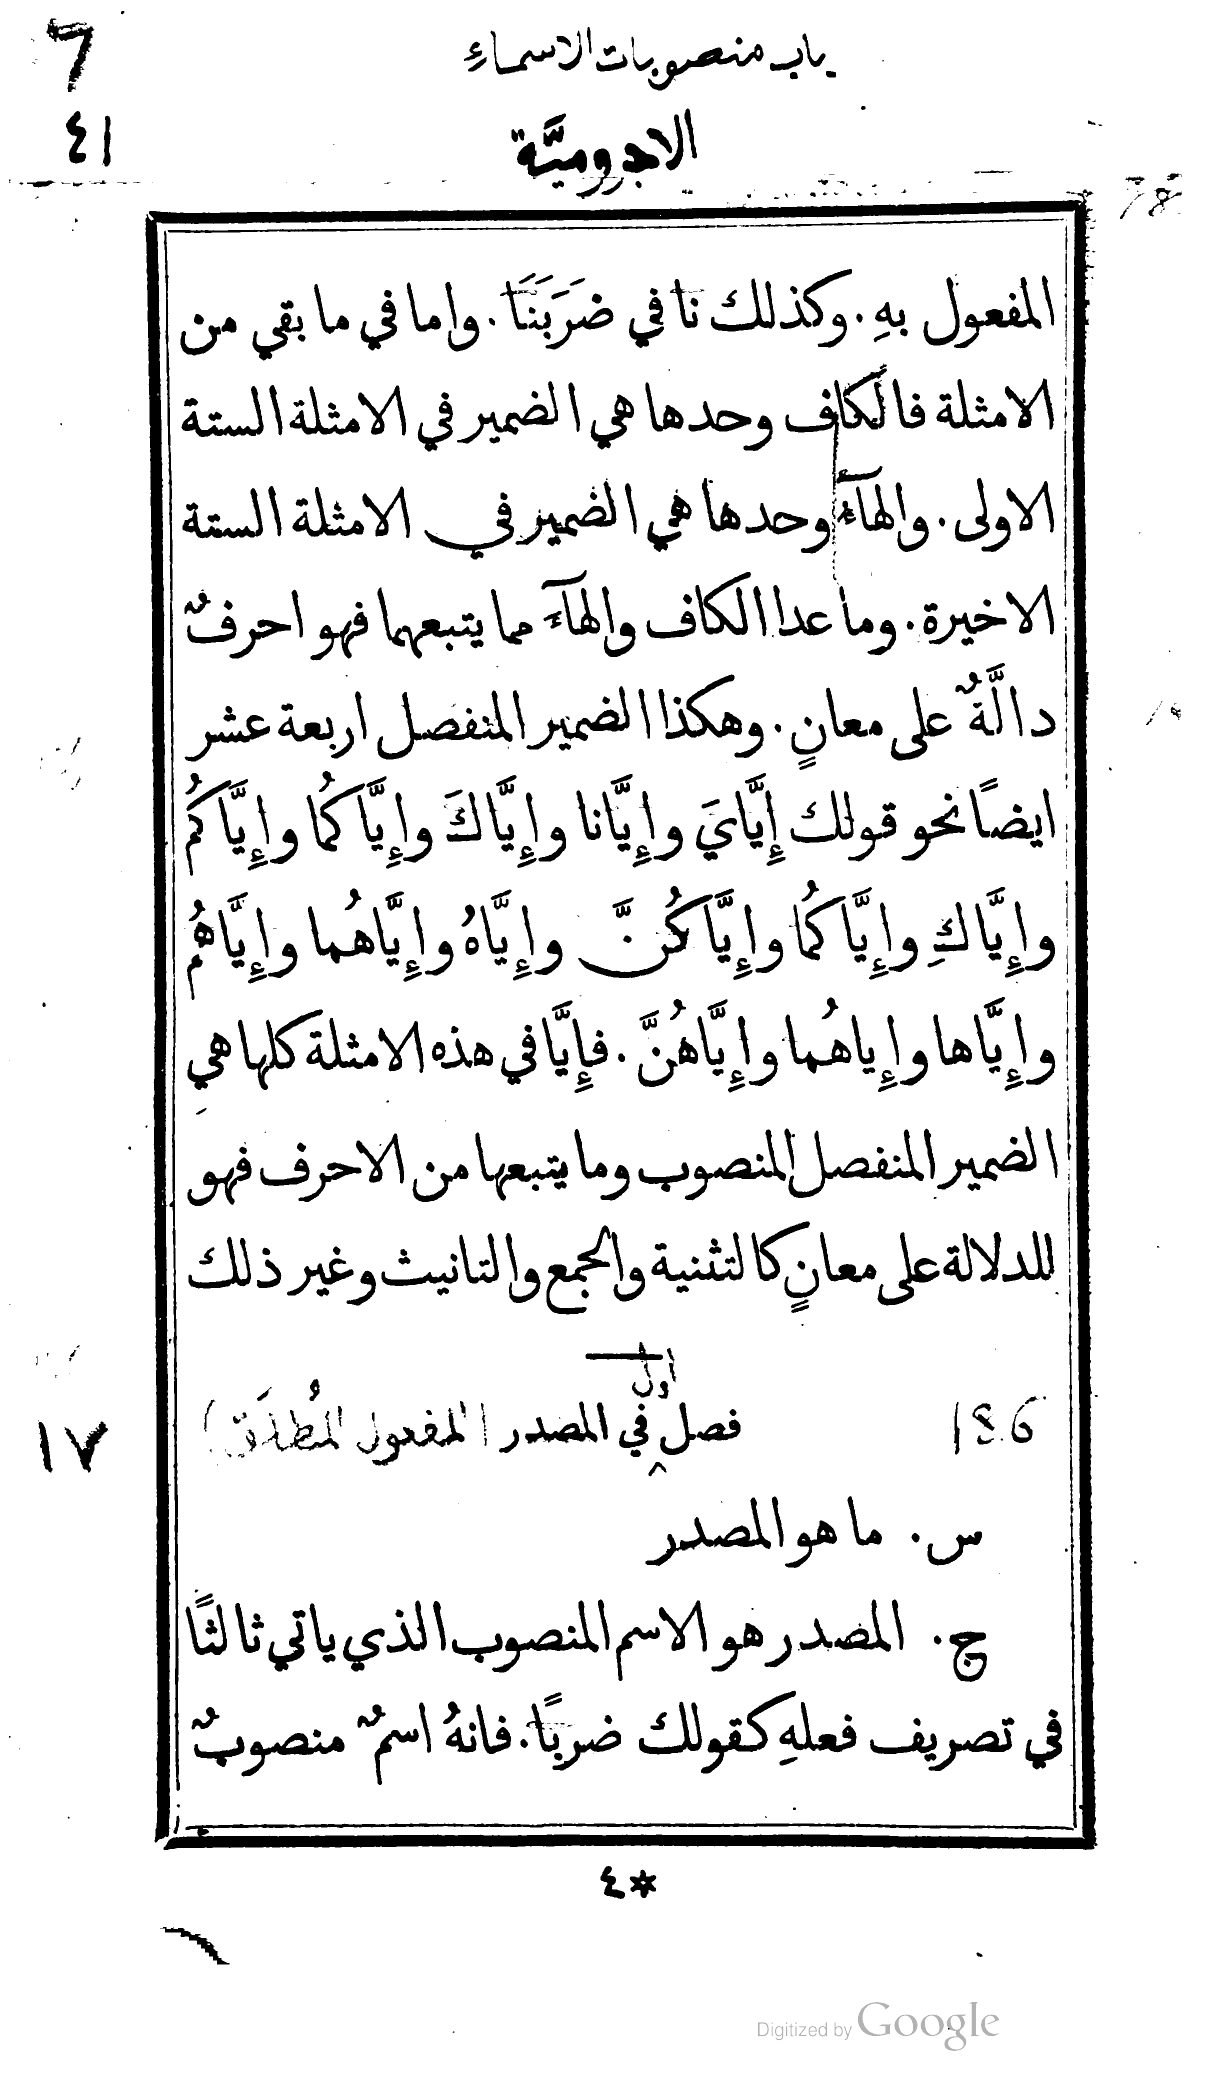 باب منصوبات الاسماءِ
٤١
الاجروميَّة
المفعول بهِ. وكذلك نا في ضَرَبَنَا. واما في ما بقي من
الامثلة فالكاف وحدها هي الضمير في الامثلة الستة
الاولى. والهآءُ وحدها هي الضمير في الامثلة الستة
الاخيرة. وما عدا الكاف والهآءَ مما يتبعهما فهو احرفٌ
دالَّةٌ على معانٍ. وهكذا الضمير المنفصل اربعة عشر
ايضًا نحو قولك إِيَّايَ وإِيَّانا وإِيَّاكَ وإِيَّاكُما وإِيَّاكُم
وإِيَّاكِ وإِيَّاكُما وإِيَّاكُنَّ وإِيَّاهُ وإِيَّاهُما وإِيَّاهُم
وإِيَّاها وإِياهُما وإِيَّاهُنَّ. فإِيَّا في هذه الامثلة كلها هي
الضمير المنفصل المنصوب وما يتبعها من الاحرف فهو
للدلالة على معانٍ كالتثنية والجمع والتانيث وغير ذلك
اول
186 فصلٌ في المصدر (المفعول المُطلَق)
١٧
س. ما هو المصدر
ج. المصدر هو الاسم المنصوب الذي ياتي ثالثًا
في تصريف فعلهِ كقولك ضربًا. فانهُ اسمٌ منصوبٌ
*٤
Digitized by Google